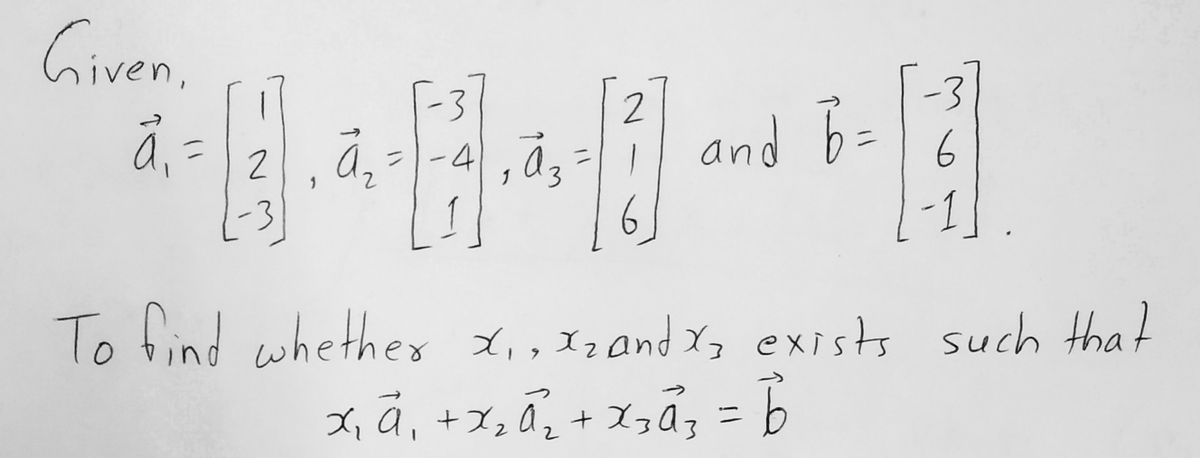 Given,
a⃗₁ = [1 2 -3], a⃗₂ = [-3 -4 1], a⃗₃ = [2 1 6] and b⃗ = [-3 6 -1].
To find whether x₁, x₂ and x₃ exists such that
x₁a⃗₁ + x₂a⃗₂ + x₃a⃗₃ = b⃗